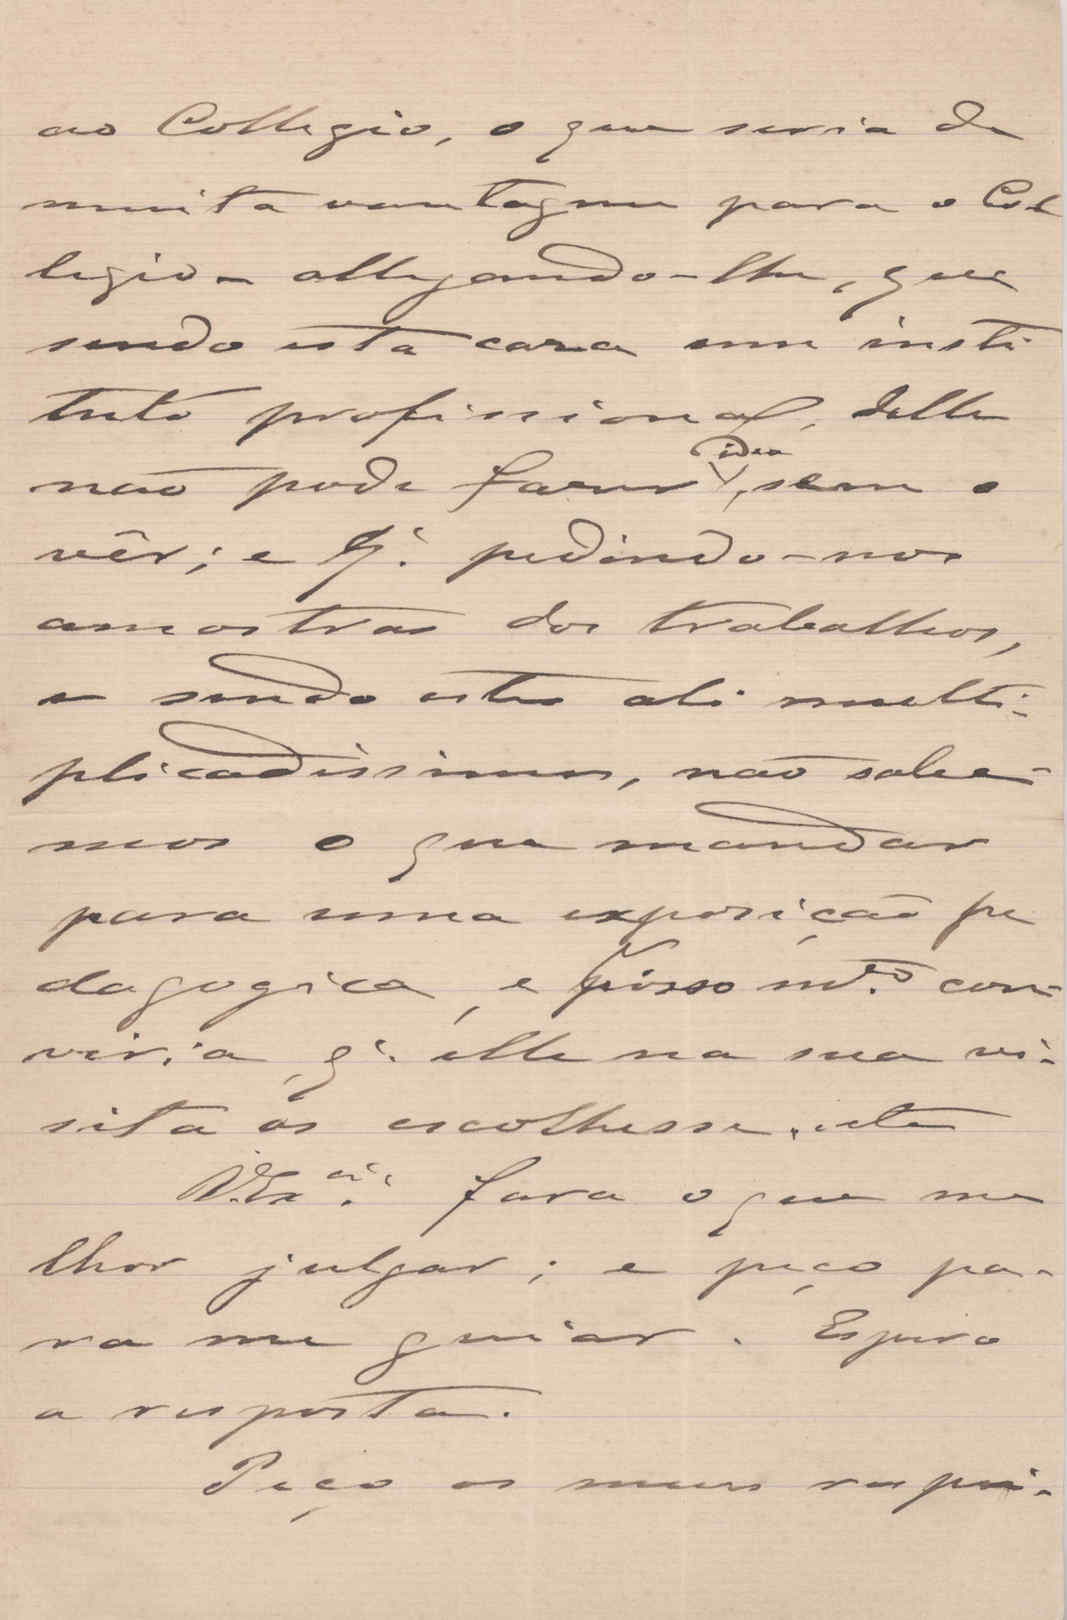 ao Collegio, o que seria de
muita vantagem para o Col
legio - allegando-lhe, que
sendo esta casa um insti-
tuto profissional, delle
não pode fazer idea, sem o
vêr; e q. pedindo-nos
amostras dos trabalhos,
e sendo estes ali multi-
plicadissimos, não sabe-
mos o que mandar
para uma exposição pe
dagogica, e por isso m.to con-
viria, q. elle na sua vi-
sita os escolhesse. etc
V. Ex.cia fara o que me
lhor julgar; e peço pa-
ra me guiar. Espero
a resposta.
Peço os meus respei-